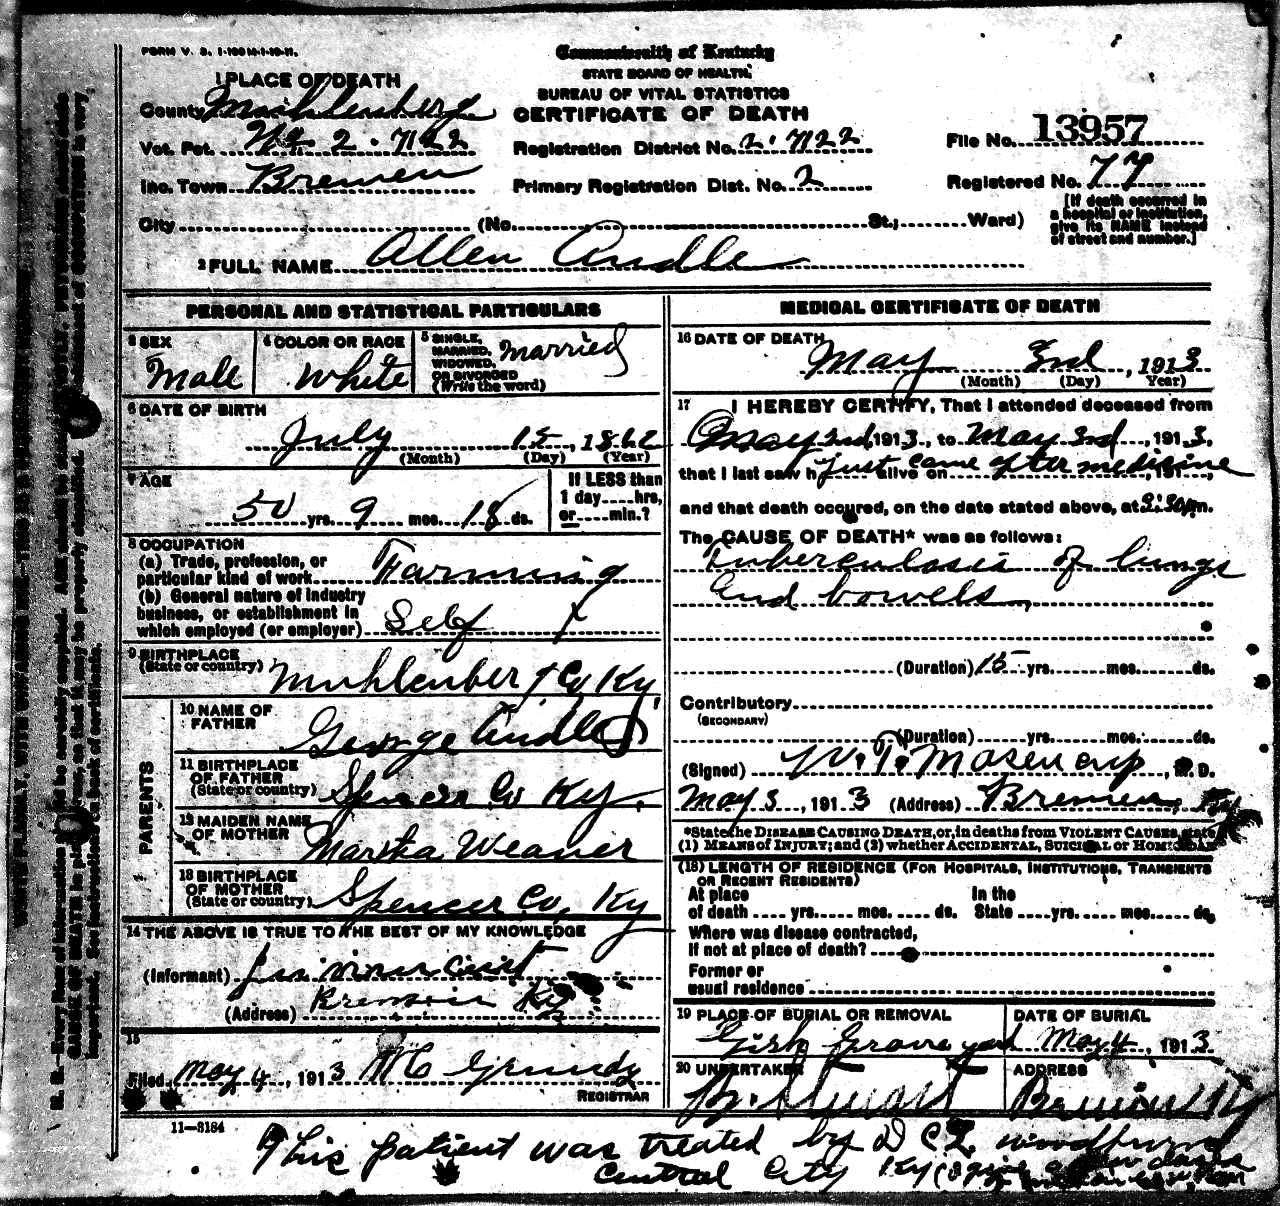 FORM V. S. 1-100M-1-10-11.
Commonwealth of Kentucky
STATE BOARD OF HEALTH.
BUREAU OF VITAL STATISTICS
CERTIFICATE OF DEATH
1 PLACE OF DEATH
County Muhlenberg
Vot. Pct. No 2 - 7122
Registration District No. 2-7122
File No. 13957
Inc. Town Bremen
Primary Registration Dist. No. 2
Registered No. 77
City (No. St.; Ward)
[If death occurred in a hospital or institution, give its NAME instead of street and number.]
2 FULL NAME Allen Andle
PERSONAL AND STATISTICAL PARTICULARS
3 SEX Male
4 COLOR OR RACE White
5 SINGLE, MARRIED, WIDOWED, OR DIVORCED (Write the word) Married
6 DATE OF BIRTH
July 15, 1862
(Month) (Day) (Year)
7 AGE
50 yrs. 9 mos. 18 ds.
If LESS than 1 day hrs. or min.?
8 OCCUPATION
(a) Trade, profession, or particular kind of work Farming
(b) General nature of industry business, or establishment in which employed (or employer) Self
9 BIRTHPLACE (State or country) Muhlenberg Co Ky
PARENTS
10 NAME OF FATHER George Andle
11 BIRTHPLACE OF FATHER (State or country) Spencer Co Ky.
12 MAIDEN NAME OF MOTHER Martha Weaver
13 BIRTHPLACE OF MOTHER (State or country) Spencer Co, Ky
14 THE ABOVE IS TRUE TO THE BEST OF MY KNOWLEDGE
(Informant)
(Address) Bremen Ky
15
Filed May 4, 1913 REGISTRAR
11-3184
MEDICAL CERTIFICATE OF DEATH
16 DATE OF DEATH
May 3rd, 1913
(Month) (Day) (Year)
17 I HEREBY CERTIFY, That I attended deceased from
May 3rd 1913, to May 3rd, 1913,
that I last saw h just came after medicine alive on , 191 ,
and that death occured, on the date stated above, at 3:30 p m.
The CAUSE OF DEATH* was as follows:
Tuberculosis of lungs
and bowels
(Duration) 15 yrs. mos. ds.
Contributory
(SECONDARY)
(Duration) yrs. mos. ds.
(Signed) , M. D.
May 3, 1913 (Address) Bremen, Ky
*State the DISEASE CAUSING DEATH, or, in deaths from VIOLENT CAUSES, state (1) MEANS OF INJURY; and (2) whether ACCIDENTAL, SUICIDAL or HOMICIDAL
(18) LENGTH OF RESIDENCE (FOR HOSPITALS, INSTITUTIONS, TRANSIENTS OR RECENT RESIDENTS)
At place of death yrs. mos. ds. In the State yrs. mos. ds.
Where was disease contracted,
If not at place of death?
Former or usual residence
19 PLACE OF BURIAL OR REMOVAL
Gish Grave yard
DATE OF BURIAL
May 4, 1913
20 UNDERTAKER
ADDRESS
Bremen Ky
This patient was treated by D
Central City Ky